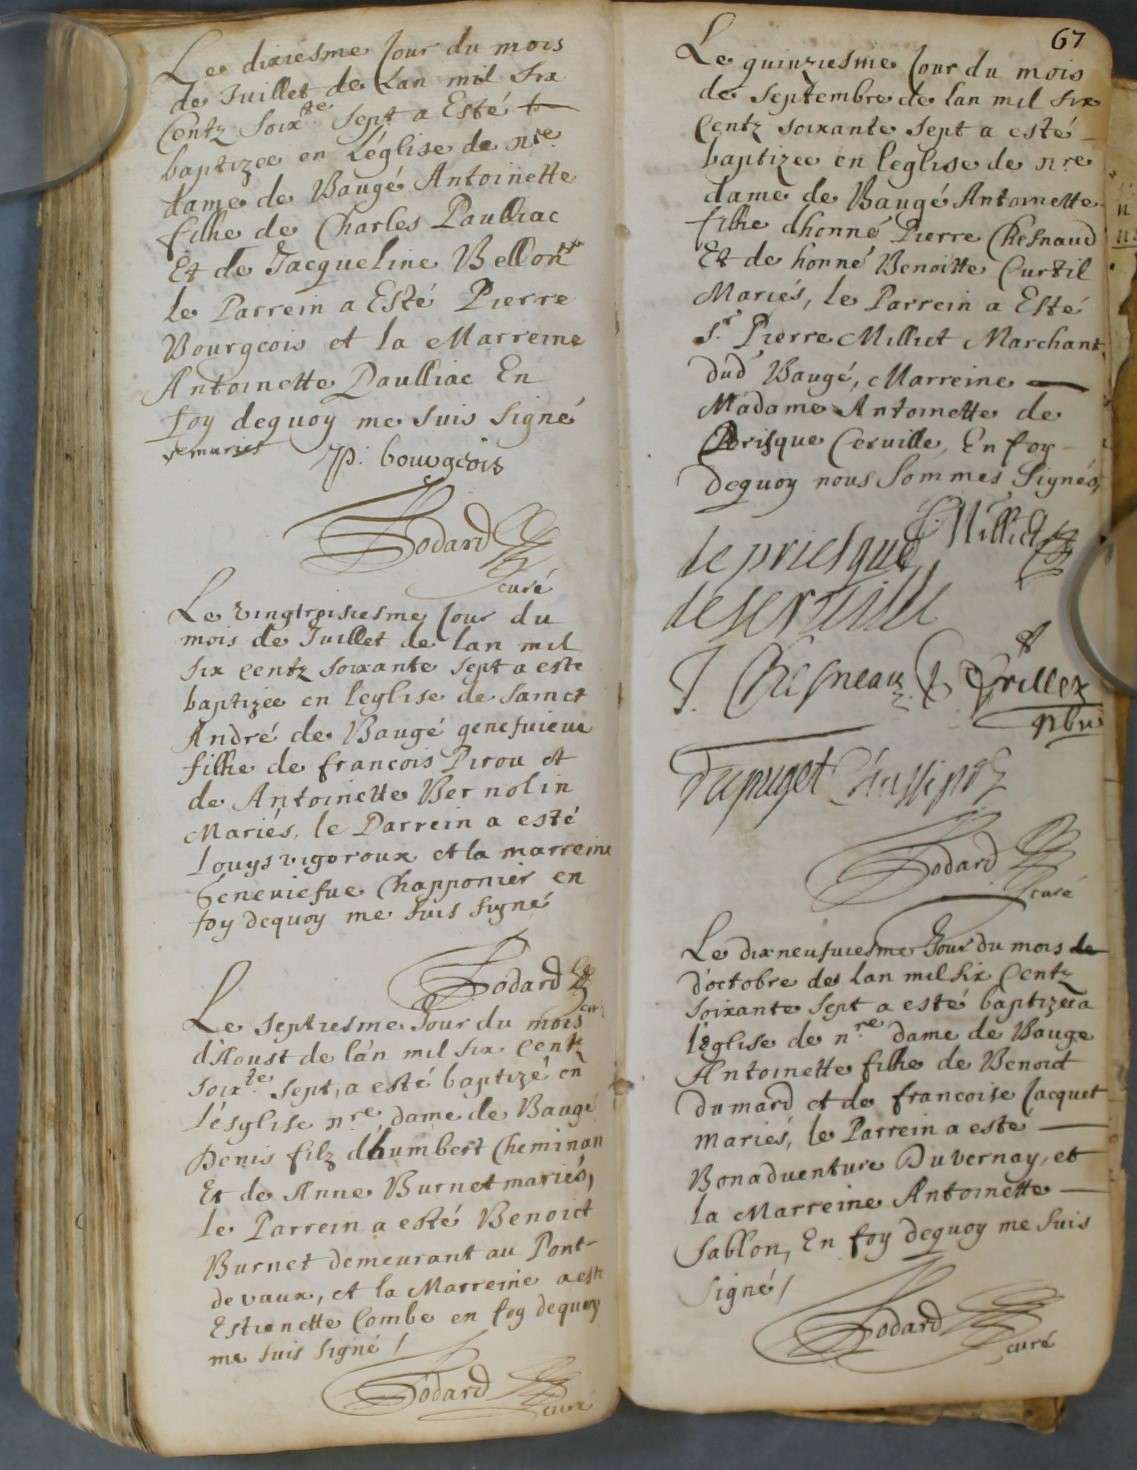 Le dixiesme Jour du mois
de Juillet de Lan mil Six
Centz Soixte Sept a Esté
baptizee en Léglise de nre
dame de Baugé Antoinette
filhe de Charles Paulliac
Et de Jacqueline Bellon
le Parrein a Esté Pierre
Bourgeois et la Marreine
Antoinette Paulliac En
foy dequoy me suis Signé
P. bourgeois
Godard
curé
Le vingtroisiesme Jour du
mois de Juillet de lan mil
six centz soixante sept a esté
baptizée en leglise de Sainct
André de Baugé genefuieue
filhe de francois Pirou et
de Antoinette Bernolin
Mariés, le Parrein a esté
Louys vigoroux et la marreine
Geneuiefue Chapponier en
foy dequoy me suis signé
Godard
cur
Le septiesme Jour du mois
d'Aoust de lan mil six centz
soixte sept, a esté baptizé en
l'ésglise nre dame de Baugé
Denis filz d'humbert Cheminan
Et de Anne Burnet mariés,
le Parrein a esté Benoict
Burnet demeurant au Pont-
devaux, et la Marreine a esté
Estienette Combe en foy dequoy
me suis signé /
Godard
curé
67
Le quinziesme Jour du mois
de Septembre de lan mil six
Centz soixante sept a esté
baptizee en leglise de nre
dame de Baugé Antoinette
filhe dhonné Pierre Chesnaud
Et de honné Benoitte Curtil
Mariés, le Parrein a Esté
sr. Pierre Milliet Marchant
dud Baugé, Marreine
Madame Antoinette de
Prisque Cerville, En foy
dequoy nous Sommes Signés,
P. Milliet
de priesque
deserville
P. Chesneau
Grillet
dupuget
Godard
curé
Le dixneufuiesme Jour du mois
d'octobre de Lan mil six Centz
soixante sept a esté baptizee a
léglise de nre dame de Bauge
Antoinette filhe de Benoict
Dumard et de francoise Jacquet
mariés, le Parrein a este
Bonaduenture Duvernay, et
la Marreine Antoinette
Sablon, En foy dequoy me suis
signé /
Godard
curé